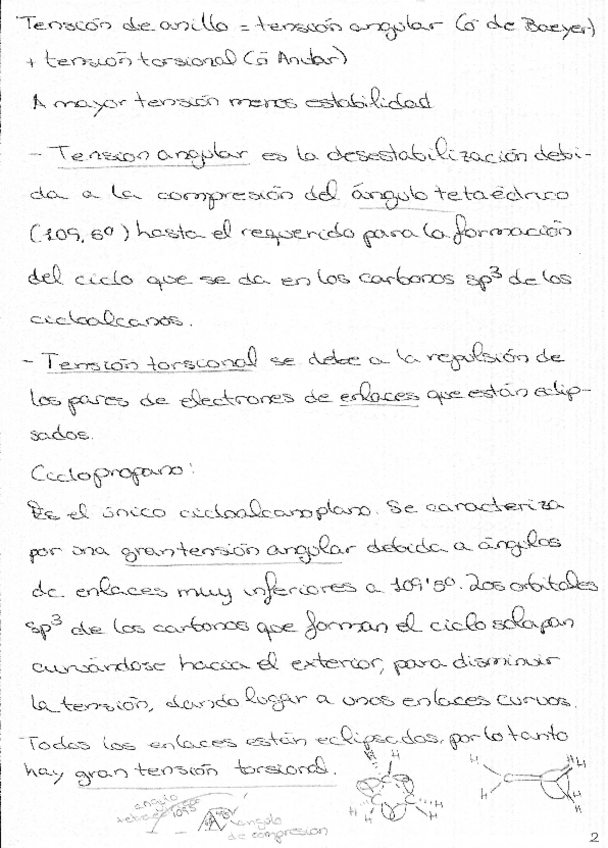 Tensión de anillo = tensión angular (ó de Baeyer)
+ tensión torsional (ó Andar)
A mayor tensión menos estabilidad
- Tension angular es la desestabilización debi-
da a la compresión del ángulo tetaédrico
(109,6º) hasta el requerido para la formación
del ciclo que se da en los carbonos sp³ de los
cicloalcanos.
- Tensión torsional se debe a la repulsión de
los pares de electrones de enlaces que están eclip-
sados.
Ciclopropano:
Es el único cicloalcano plano. Se caracteriza
por una gran tensión angular debida a ángulos
de enlaces muy inferiores a 109'5º. Los orbitales
sp³ de los carbonos que forman el ciclo solapan
curvándose hacia el exterior, para disminuir
la tensión, dando lugar a unos enlaces curvos.
Todos los enlaces están eclipsados, por lo tanto
hay gran tensión torsional.
H H H H H
H H H H H
angulo
109'5
angulo
de compresion
2